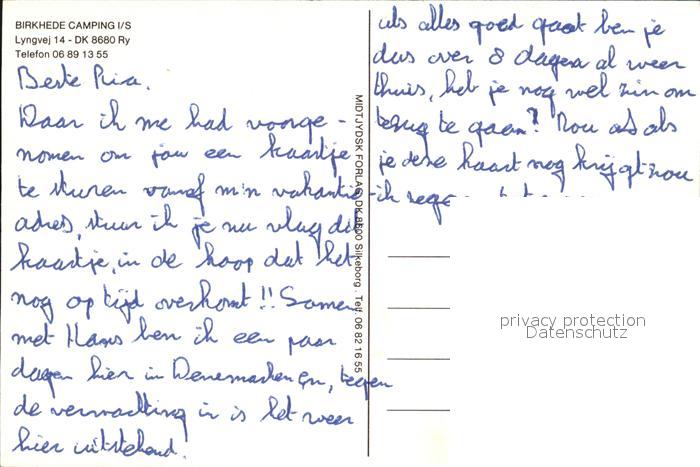 BIRKHEDE CAMPING I/S
Lyngvej 14 - DK 8680 Ry
Telefon 06 89 13 55
Beste Ria.
Daar ik me had voorge-
nomen om jou een kaartje
te sturen vanaf m'n vakantie-
adres, stuur ik je nu vlug dit
kaartje, in de hoop dat het
nog op tijd overkomt!! Samen
met Hans ben ik een paar
dagen hier in Denemarken en, tegen
de verwachting in is het weer
hier uitstekend.
MIDTJYDSK FORLAG DK 8600 Silkeborg . Telf. 06 82 16 55
als alles goed gaat ben je
dus over 8 dagen al weer
thuis, heb je nog wel zin om
terug te gaan? Nou als
je deze kaart nog krijgt nou
ik
privacy protection
Datenschutz